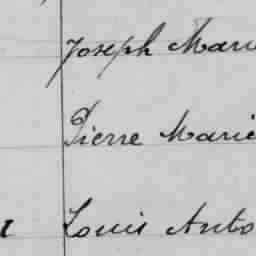 Joseph Marie
Pierre Marie
Louis Anto